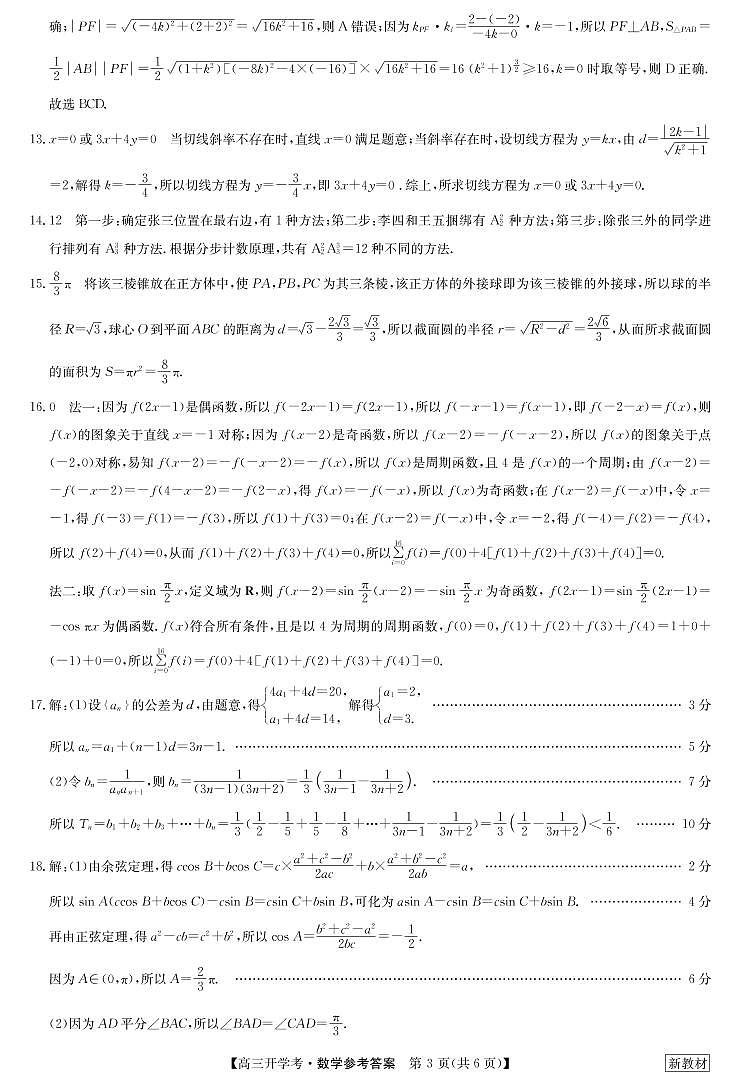 确;|PF|=√((-4k)²+(2+2)²)=√(16k²+16),则 A 错误;因为 k_PF·k_l=(2-(-2))/(-4k-0)·k=-1,所以 PF⊥AB,S_△PAB=
1/2|AB||PF|=1/2√((1+k²)[(-8k)²-4×(-16)])×√(16k²+16)=16(k²+1)^(3/2)≥16,k=0 时取等号,则 D 正确.
故选 BCD.
13. x=0 或 3x+4y=0 当切线斜率不存在时,直线 x=0 满足题意;当斜率存在时,设切线方程为 y=kx,由 d=|2k-1|/√(k²+1)
=2,解得 k=-3/4,所以切线方程为 y=-3/4x,即 3x+4y=0.综上,所求切线方程为 x=0 或 3x+4y=0.
14. 12 第一步:确定张三位置在最右边,有 1 种方法;第二步:李四和王五捆绑有 A₂² 种方法;第三步:除张三外的同学进
行排列有 A₃³ 种方法.根据分步计数原理,共有 A₂²A₃³=12 种不同的方法.
15. 8/3π 将该三棱锥放在正方体中,使 PA,PB,PC 为其三条棱,该正方体的外接球即为该三棱锥的外接球,所以球的半
径 R=√3,球心 O 到平面 ABC 的距离为 d=√3-2√3/3=√3/3,所以截面圆的半径 r=√(R²-d²)=2√6/3,从而所求截面圆
的面积为 S=πr²=8/3π.
16. 0 法一:因为 f(2x-1)是偶函数,所以 f(-2x-1)=f(2x-1),所以 f(-x-1)=f(x-1),即 f(-2-x)=f(x),则
f(x)的图象关于直线 x=-1 对称;因为 f(x-2)是奇函数,所以 f(x-2)=-f(-x-2),所以 f(x)的图象关于点
(-2,0)对称,易知 f(x-2)=-f(-x-2)=-f(x),所以 f(x)是周期函数,且 4 是 f(x)的一个周期;由 f(x-2)=
-f(-x-2)=-f(4-x-2)=-f(2-x),得 f(x)=-f(-x),所以 f(x)为奇函数;在 f(x-2)=f(-x)中,令 x=
-1,得 f(-3)=f(1)=-f(3),所以 f(1)+f(3)=0;在 f(x-2)=f(-x)中,令 x=-2,得 f(-4)=f(2)=-f(4),
所以 f(2)+f(4)=0,从而 f(1)+f(2)+f(3)+f(4)=0,所以∑_{i=0}^{16}f(i)=f(0)+4[f(1)+f(2)+f(3)+f(4)]=0.
法二:取 f(x)=sin π/2 x,定义域为 R,则 f(x-2)=sin π/2(x-2)=-sin π/2 x 为奇函数, f(2x-1)=sin π/2(2x-1)=
-cos πx 为偶函数. f(x)符合所有条件,且是以 4 为周期的周期函数,f(0)=0,f(1)+f(2)+f(3)+f(4)=1+0+
(-1)+0=0,所以∑_{i=0}^{16}f(i)=f(0)+4[f(1)+f(2)+f(3)+f(4)]=0.
17. 解:(1)设{aₙ}的公差为 d,由题意,得{4a₁+4d=20, a₁+4d=14, 解得{a₁=2, d=3. ……………… 3 分
所以 aₙ=a₁+(n-1)d=3n-1. ……………… 5 分
(2)令 bₙ=1/(aₙaₙ₊₁),则 bₙ=1/((3n-1)(3n+2))=1/3(1/(3n-1)-1/(3n+2)). ……………… 7 分
所以 Tₙ=b₁+b₂+b₃+…+bₙ=1/3(1/2-1/5+1/5-1/8+…+1/(3n-1)-1/(3n+2))=1/3(1/2-1/(3n+2))<1/6. ……… 10 分
18. 解:(1)由余弦定理,得 ccos B+bcos C=c×(a²+c²-b²)/2ac+b×(a²+b²-c²)/2ab=a, ……………… 2 分
所以 sin A(ccos B+bcos C)-csin B=csin C+bsin B,可化为 asin A-csin B=csin C+bsin B. ……………… 4 分
再由正弦定理,得 a²-cb=c²+b²,所以 cos A=(b²+c²-a²)/2bc=-1/2.
因为 A∈(0,π),所以 A=2/3π. ……………… 6 分
(2)因为 AD 平分∠BAC,所以∠BAD=∠CAD=π/3.
【高三开学考·数学参考答案 第 3 页(共 6 页)】 新教材